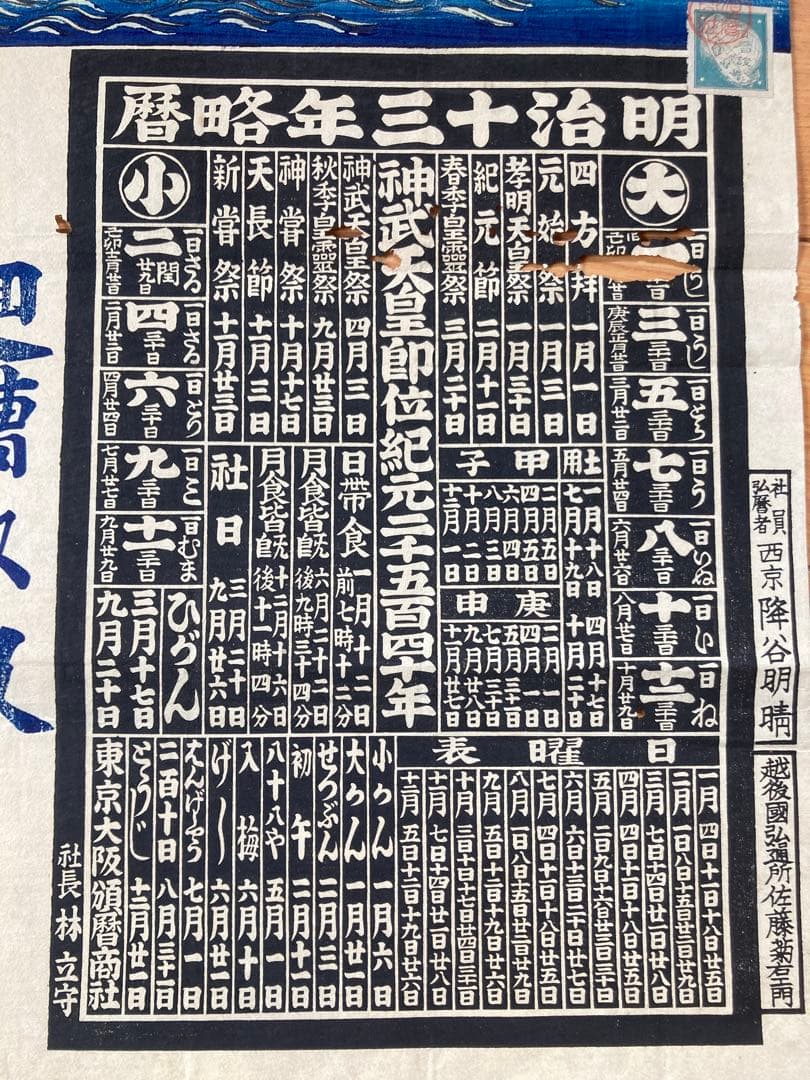 明治十三年略暦
大
三 一日うし 三十一日 庚辰正月廿一日
五 一日とら 三十一日 三月廿二日
七 一日う 三十一日 五月廿四日
八 一日いぬ 三十一日 六月廿六日
十 一日い 三十一日 八月廿七日
十二 一日ね 三十一日 十月廿九日
四方拜 一月一日
元始祭 一月三日
孝明天皇祭 一月三十日
紀元節 二月十一日
春季皇靈祭 三月二十日
土用
一月十八日 四月十七日
七月十九日 十月二十日
甲子
二月五日
四月五日
六月四日
八月三日
十月二日
十二月一日
庚申
二月一日
四月一日
五月三十一日
七月三十日
九月廿八日
十一月廿七日
神武天皇即位紀元二千五百四十年
神武天皇祭 四月三日
秋季皇靈祭 九月廿三日
神嘗祭 十月十七日
天長節 十一月三日
新嘗祭 十一月廿三日
日帶食 一月十二日 前七時十二分
月食皆既 六月二十二日 後九時三十四分
月食皆既 十二月十六日 後十一時四分
社日 三月二十日 九月廿六日
小
二 閏 一日さる 廿九日 己卯十二月廿一日
四 一日さる 三十日 二月廿二日
六 一日とり 三十日 四月廿四日
九 一日ミ 三十日 七月廿七日
十一 一日むま 三十日 九月廿九日
ひがん
三月十七日
九月二十日
日曜表
一月 四日十一日十八日廿五日
二月 一日八日十五日廿二日廿九日
三月 七日十四日廿一日廿八日
四月 四日十一日十八日廿五日
五月 二日九日十六日廿三日三十日
六月 六日十三日二十日廿七日
七月 四日十一日十八日廿五日
八月 一日八日十五日廿二日廿九日
九月 五日十二日十九日廿六日
十月 三日十日十七日廿四日三十一日
十一月 七日十四日廿一日廿八日
十二月 五日十二日十九日廿六日
小かん 一月六日
大かん 一月廿一日
せつぶん 二月三日
初午 二月十一日
八十八や 五月一日
入梅 六月十日
げし 六月廿一日
はんげしやう 七月一日
二百十日 八月三十一日
とうじ 十二月廿一日
東京大阪頒暦商社
社長 林立守
社員
弘暦者
西京 降谷明晴
越後國弘通所佐藤菊右エ門